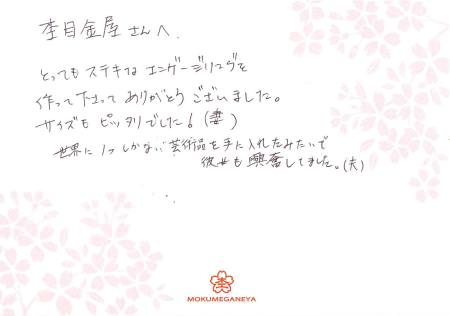 杢目金屋さんへ
とってもステキなエンゲージリングを
作って下さってありがとうございました。
サイズもピッタリでした!(妻)
世界に1つしかない芸術品を手に入れたみたいで
彼女も興奮してました。(夫)
杢
MOKUMEGANEYA